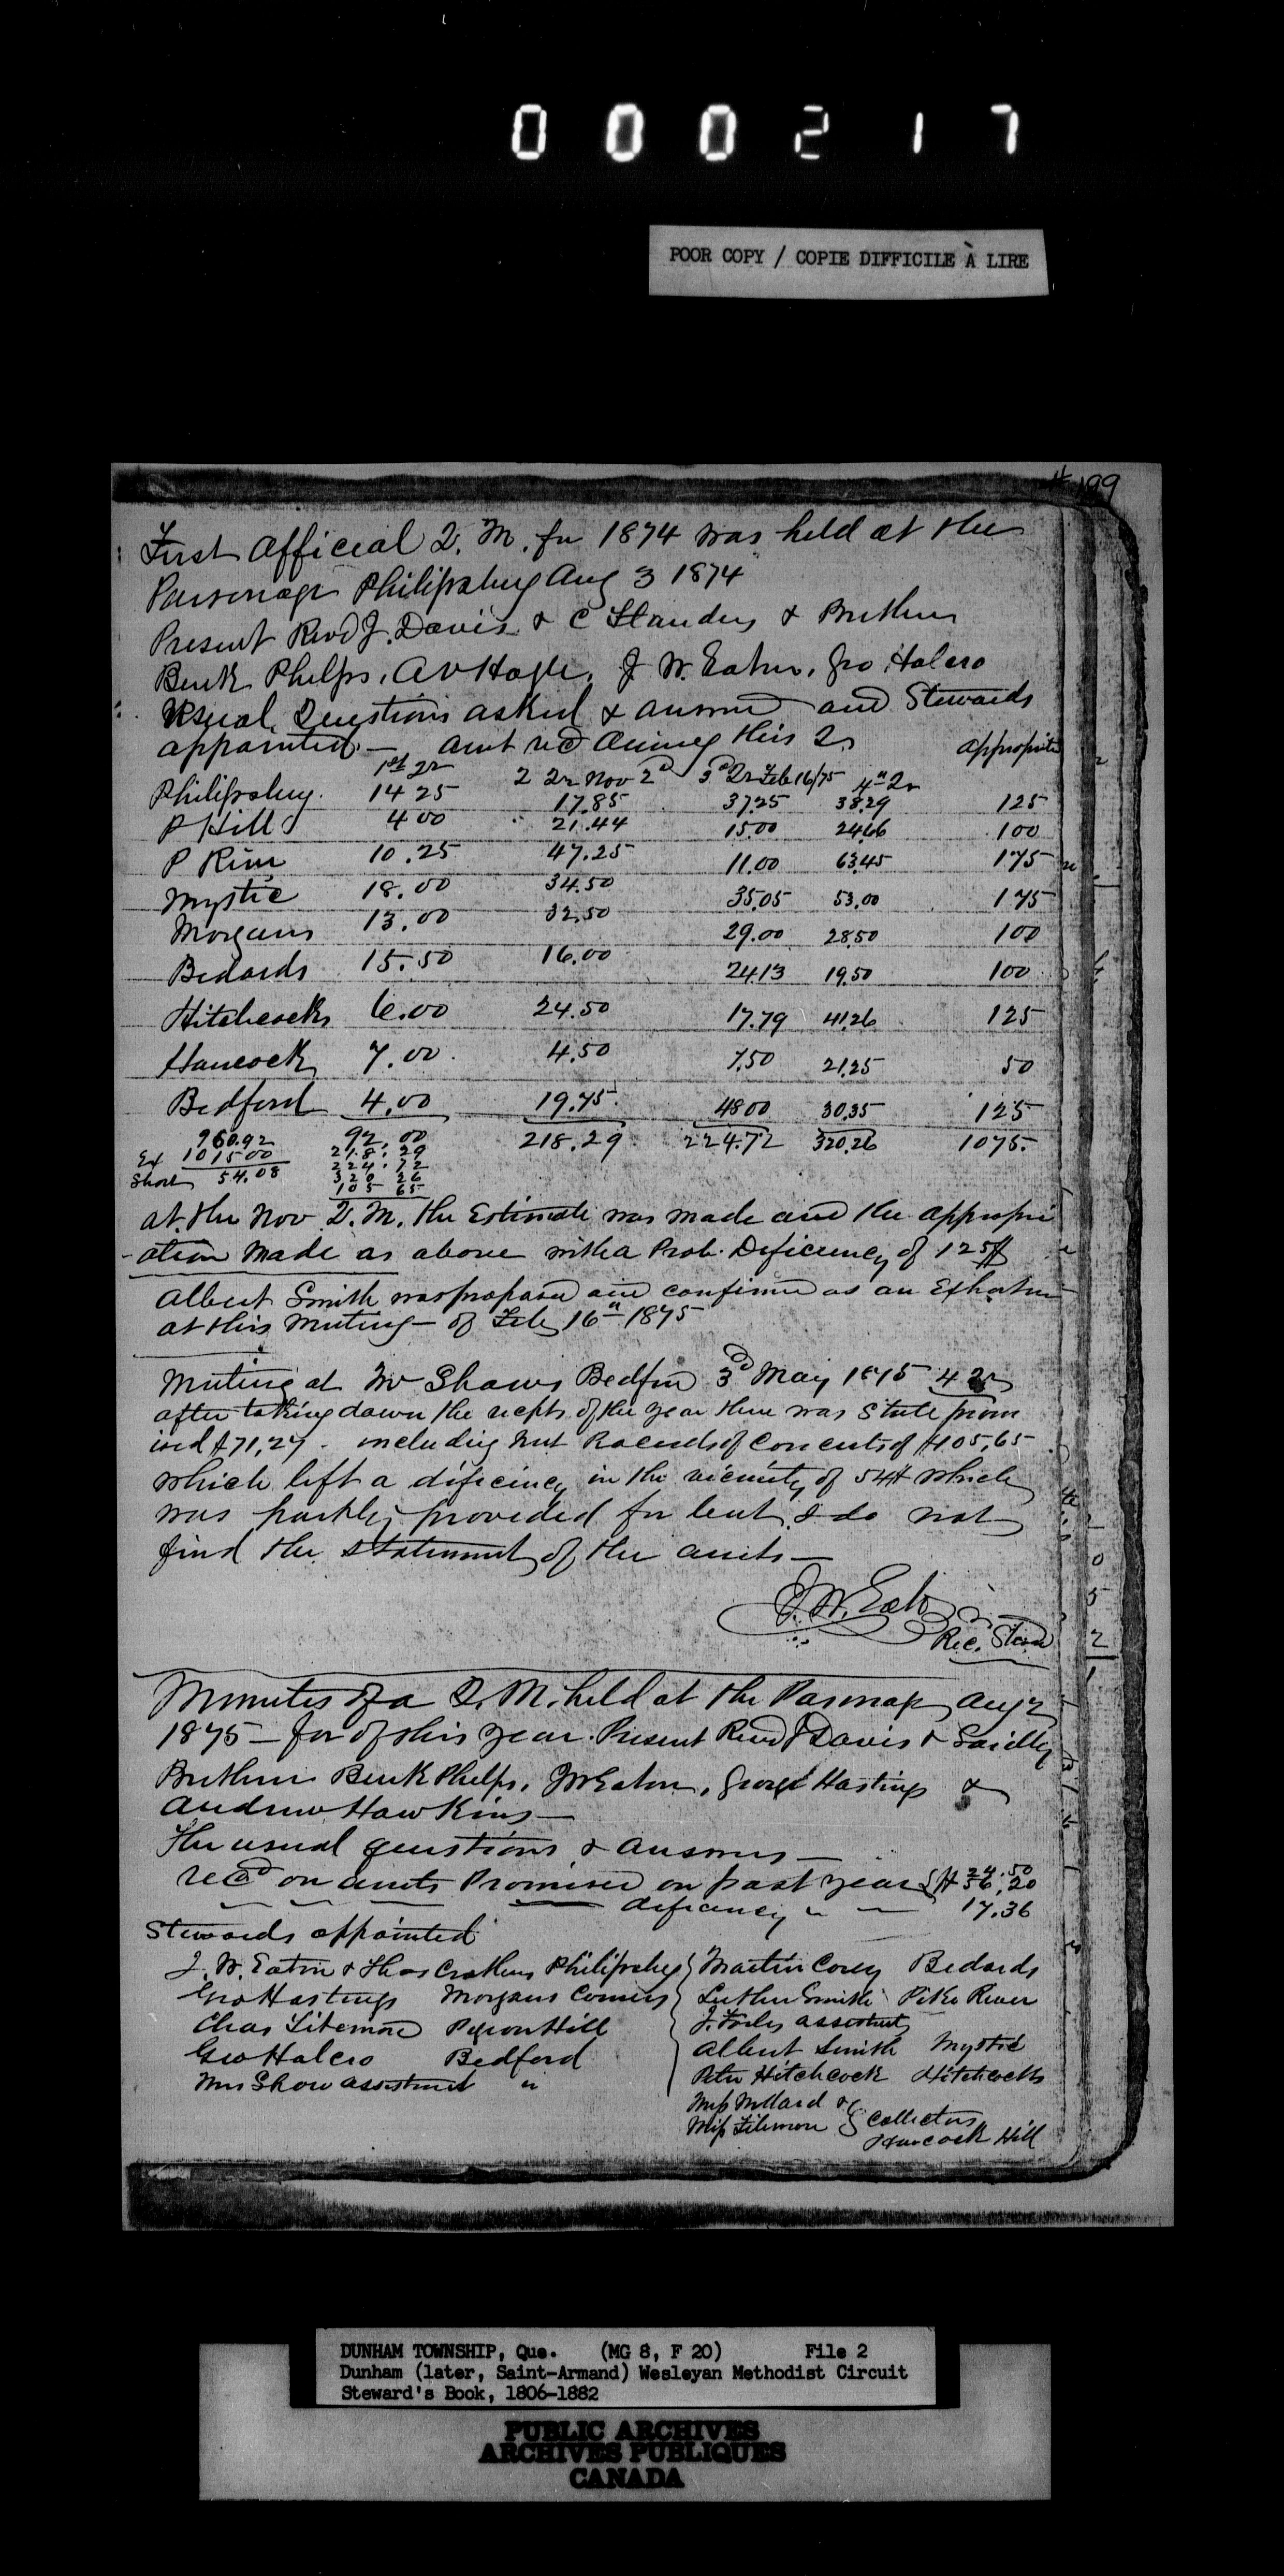 000217
POOR COPY / COPIE DIFFICILE À LIRE
199
First Official Q. M. for 1874 was held at the
Parsonage Philipsburg Aug 3 1874
Present Revd J. Davis & C Flanders & Brethren
Benk Phelps, A V Hogle, J W. Eaton, Geo Halcro
Usual Questions asked & answrd and Stewards
appointed — amt recd during this Qr appropriatn
1st Qr 2 Qr Nov 2d 3d Qr Feb 16/75 4th Qr
Philipsburg. 14 25 17.85 37.25 38.29 125
P Hill 4 00 21.44 15.00 24.66 100
P River 10.25 47.25 11.00 63.45 175
Mystic 18.00 34.50 35.05 53.00 175
Morgans 13.00 32.50 29.00 28.50 100
Bedards 15.50 16.00 24.13 19.50 100
Hitchcocks 6.00 24.50 17.79 41.26 125
Hancock 7.00 4.50 7.50 21.25 50
Bedford 4.00 19.75 48 00 30.35 125
960.92 92.00 218.29 224.72 320.26 1075.
Ex 1015 00 218.29
Short 54.08 224.72
320 26
105 65
at the Nov Q. M. the Estimate was made and the appropri
-ation made as above with a Prob. Deficiency of 125$
Albert Smith was proposed and confirmed as an Exhorter
at this Meeting — of Feb 16th 1875
Meeting at Mr Shaws Bedford 3d May 1875 4 Qr
after taking down the recpts of the year there was still prom
ised $71,27. including net Proceeds of Concerts of $105,65
which left a deficiency in the vicinity of 54$ which
was partly provided for but I do not
find the statement of the assets —
J. W. Eaton
Rec. Steward
Minutes of a Q. M. held at the Parsonage Aug 2
1875 — for of this year. Present Revd J Davis &
Brethren Benk Phelps, J W Eaton, George Hastings &
Andrew Hawkins —
The usual questions & answers —
recd on amts Promised on past year $ 24.50
56,20
deficiency " — 17.36
Stewards appointed
J. W. Eaton & Thos Crothers Philipsburg
Geo Hastings Morgans Corners
Chas Titemore Pigeon Hill
Geo Halcro Bedford
Mrs Shaw assistant "
Martin Corey Bedards
Luther Smith Pike River
J. assistant
Albert Smith Mystic
Peter Hitchcock Hitchcocks
Miss &
Miss Titemore } Collectors
Hancock Hill
DUNHAM TOWNSHIP, Que. (MG 8, F 20) File 2
Dunham (later, Saint-Armand) Wesleyan Methodist Circuit
Steward's Book, 1806-1882
PUBLIC ARCHIVES
ARCHIVES PUBLIQUES
CANADA